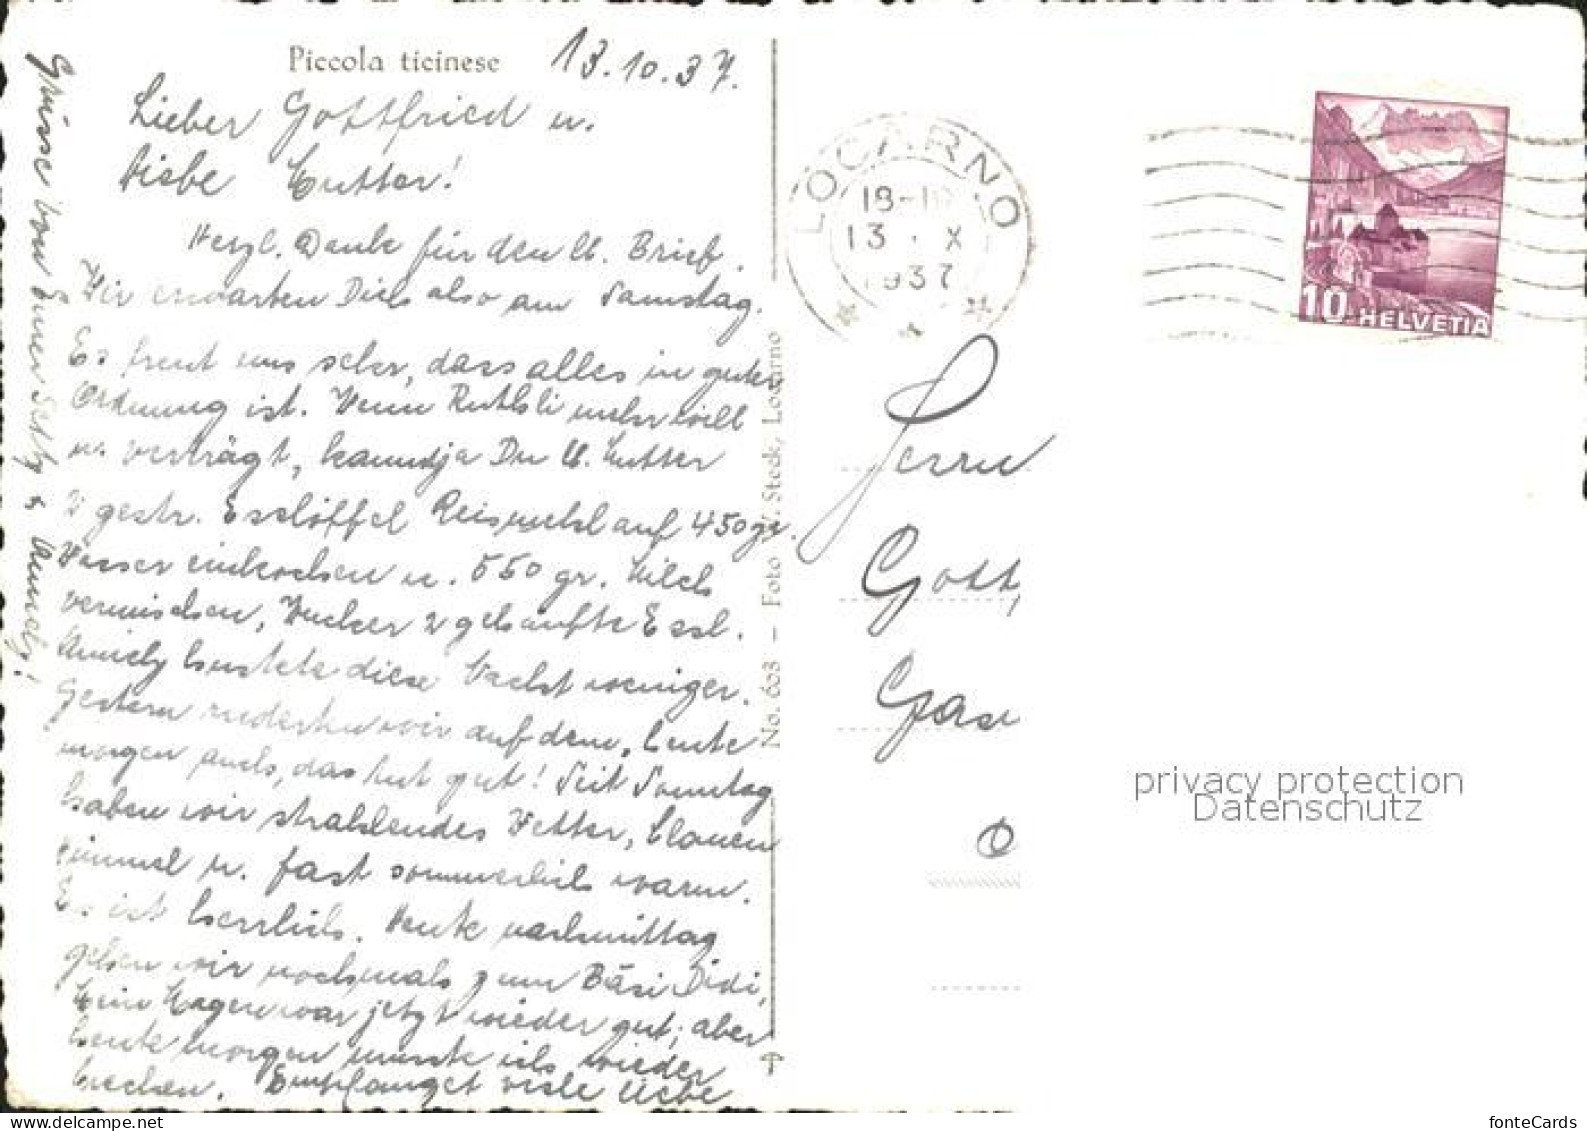 Piccola ticinese
13.10.37.
Lieber Gottfried u.
liebe Mutter!
Herzl. Dank für den lb. Brief.
Wir erwarten Dich also am Samstag.
Es freut uns sehr, dass alles in guter
Ordnung ist. Wenn Ruthli mehr will
u. verträgt, kannst ja Du lb. Mutter
2 gestr. Esslöffel Reismehl auf 450 gr.
Wasser einkochen u. 550 gr. Milch
vermischen, Zucker 2 gehäufte Essl.
hustete diese Nacht weniger.
Gestern ruderten wir auf dem, heute
morgen auch, das tut gut! Seit Sonntag
haben wir strahlendes Wetter, blauen
Himmel u. fast sommerlich warm.
Es ist herrlich. Heute nachmittag
gehen wir nochmals zum Bäsi Didi,
Mein Magen war jetzt wieder gut, aber
heute morgen musste ich wieder
brechen. Empfanget viele liebe
Grüsse von Euren &
No. 603 – Foto Steck, Locarno
LOCARNO
18-19
13. X
1937
10 HELVETIA
Herrn
Gott
Gase
O
privacy protection
Datenschutz
www.delcampe.net
fonteCards